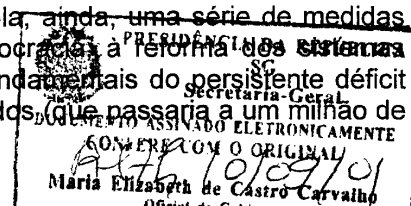 la, ainda, uma série de medidas
ocracia à reforma dos sistemas
ndamentais do persistente déficit
dos (que passaria a um milhão de
PRESIDÊNCIA DA REPÚBLICA
SG
Secretaria-Geral
DOCUMENTO ASSINADO ELETRONICAMENTE
CONFERE COM O ORIGINAL
10/09/01
Maria Elizabeth de Castro Carvalho